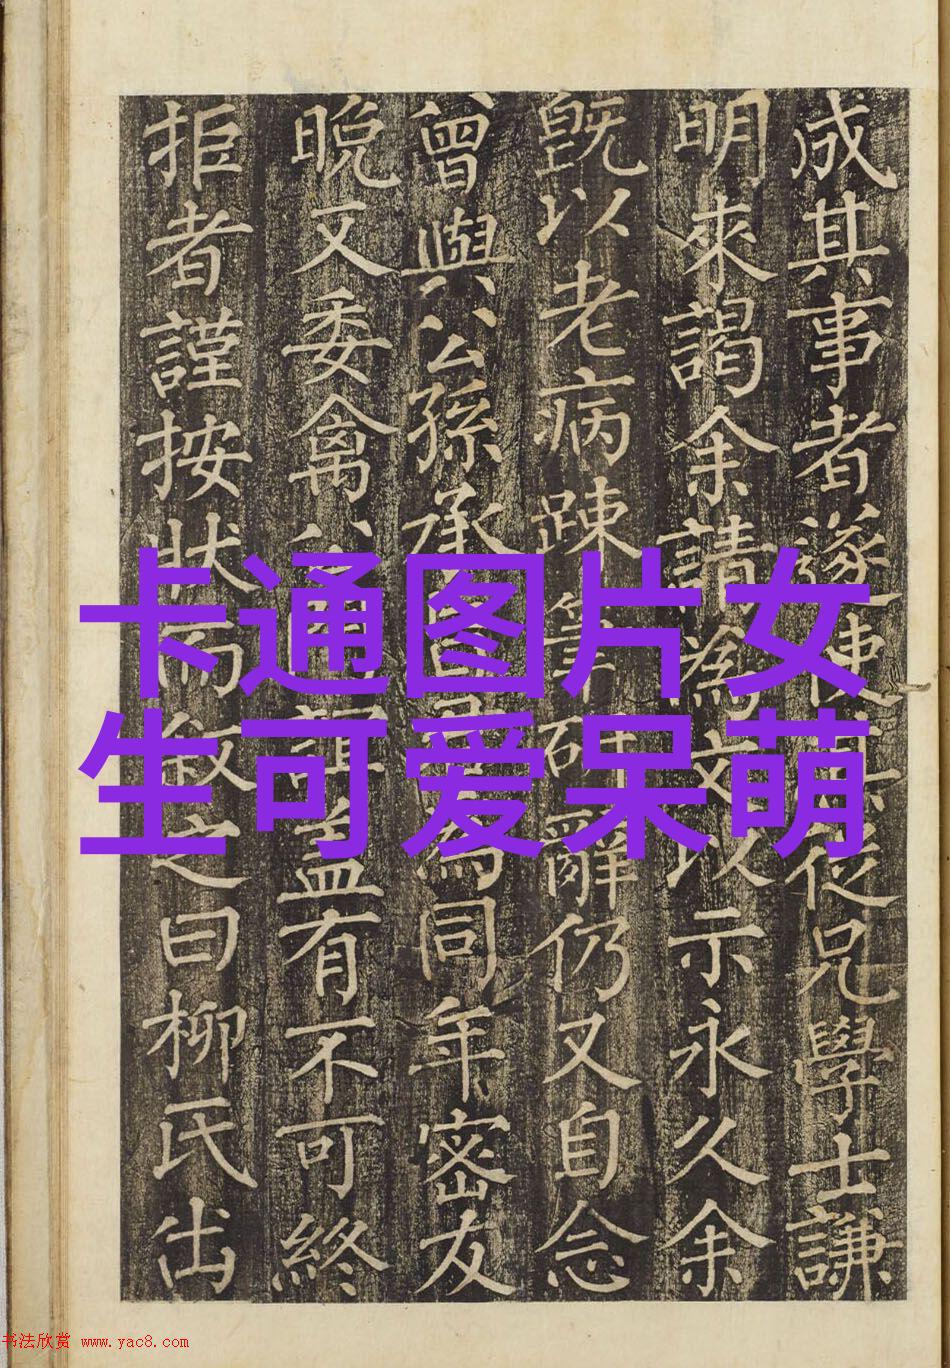 成其事者遂使其從兄學士謙
明來謁余請為文以示永久余
既以老病踈筆硯辭仍又自念
曾與公孫承為同年密友
晚又委禽盖有不可終
拒者謹按狀而敘之曰柳氏出
卡通图片女
生可爱呆萌
书法欣赏 www.yac8.com